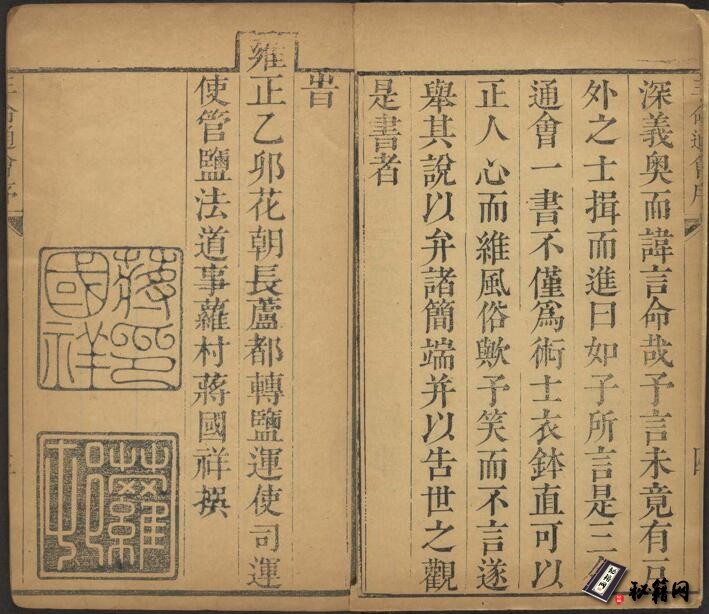 三命通會序
深義奥而諱言命哉予言未竟有方
外之士揖而進曰如子所言是三命
通會一書不僅爲術士衣鉢直可以
正人心而維風俗歟予笑而不言遂
舉其說以弁諸簡端并以告世之觀
是書者
旹
雍正乙卯花朝長蘆都轉鹽運使司運
使管鹽法道事蘿村蔣國祥撰
蔣印
國祥
三命通會序
秘籍网